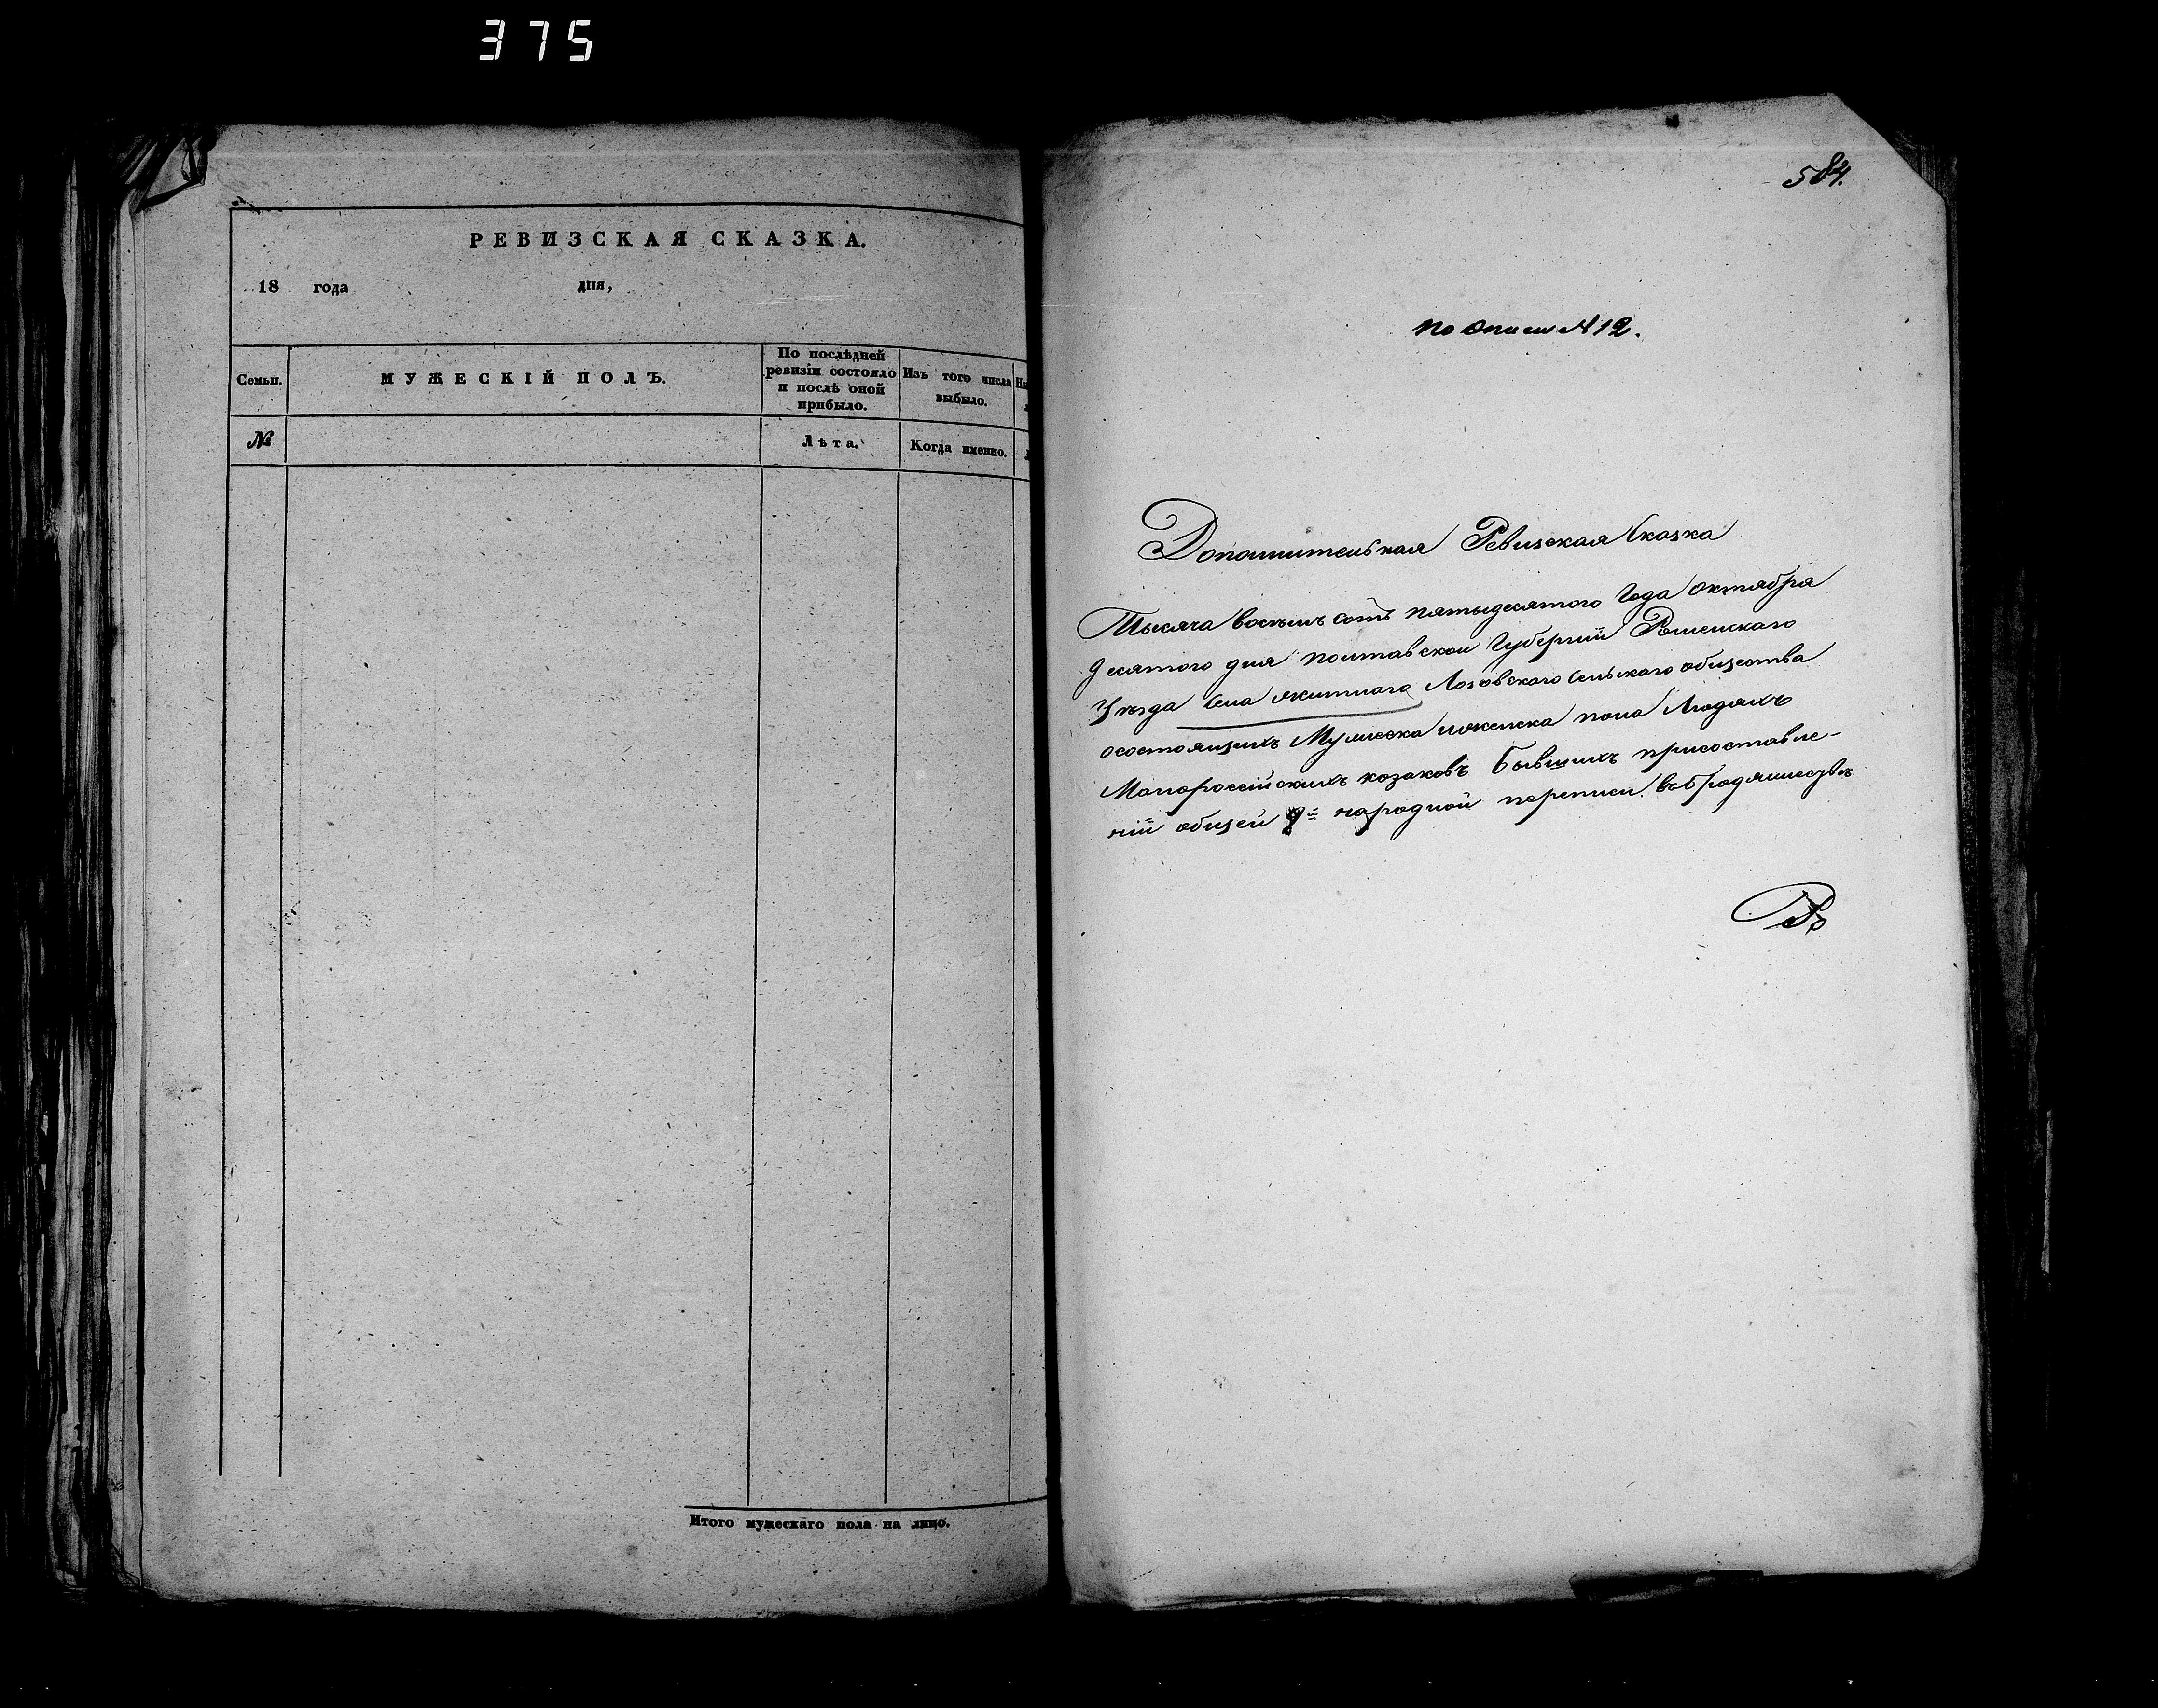 375
РЕВИЗСКАЯ СКАЗКА.
18 года дня,
Семьи.
МУЖЕСКІЙ ПОЛЪ.
По послѣдней
ревизіи состояло
и послѣ оной
прибыло.
Изъ того числа
выбыло.
№
Лѣта.
Когда именно.
Итого мужескаго пола на лицо.
584.
по описи №12.
Дополнительная Ревизская Сказка
Тысяча восемь сотъ пятьдесятого Года октября
десятого дня полтавской Губерніи Роменскаго
Уѣзда Села Лозовского Сельскаго общества
о состоящихъ Мужеска и женска пола Людяхъ
Малороссійскихъ козаковъ бывшихъ при составле-
ніи общей 9й народной переписи въ бродяжествѣ